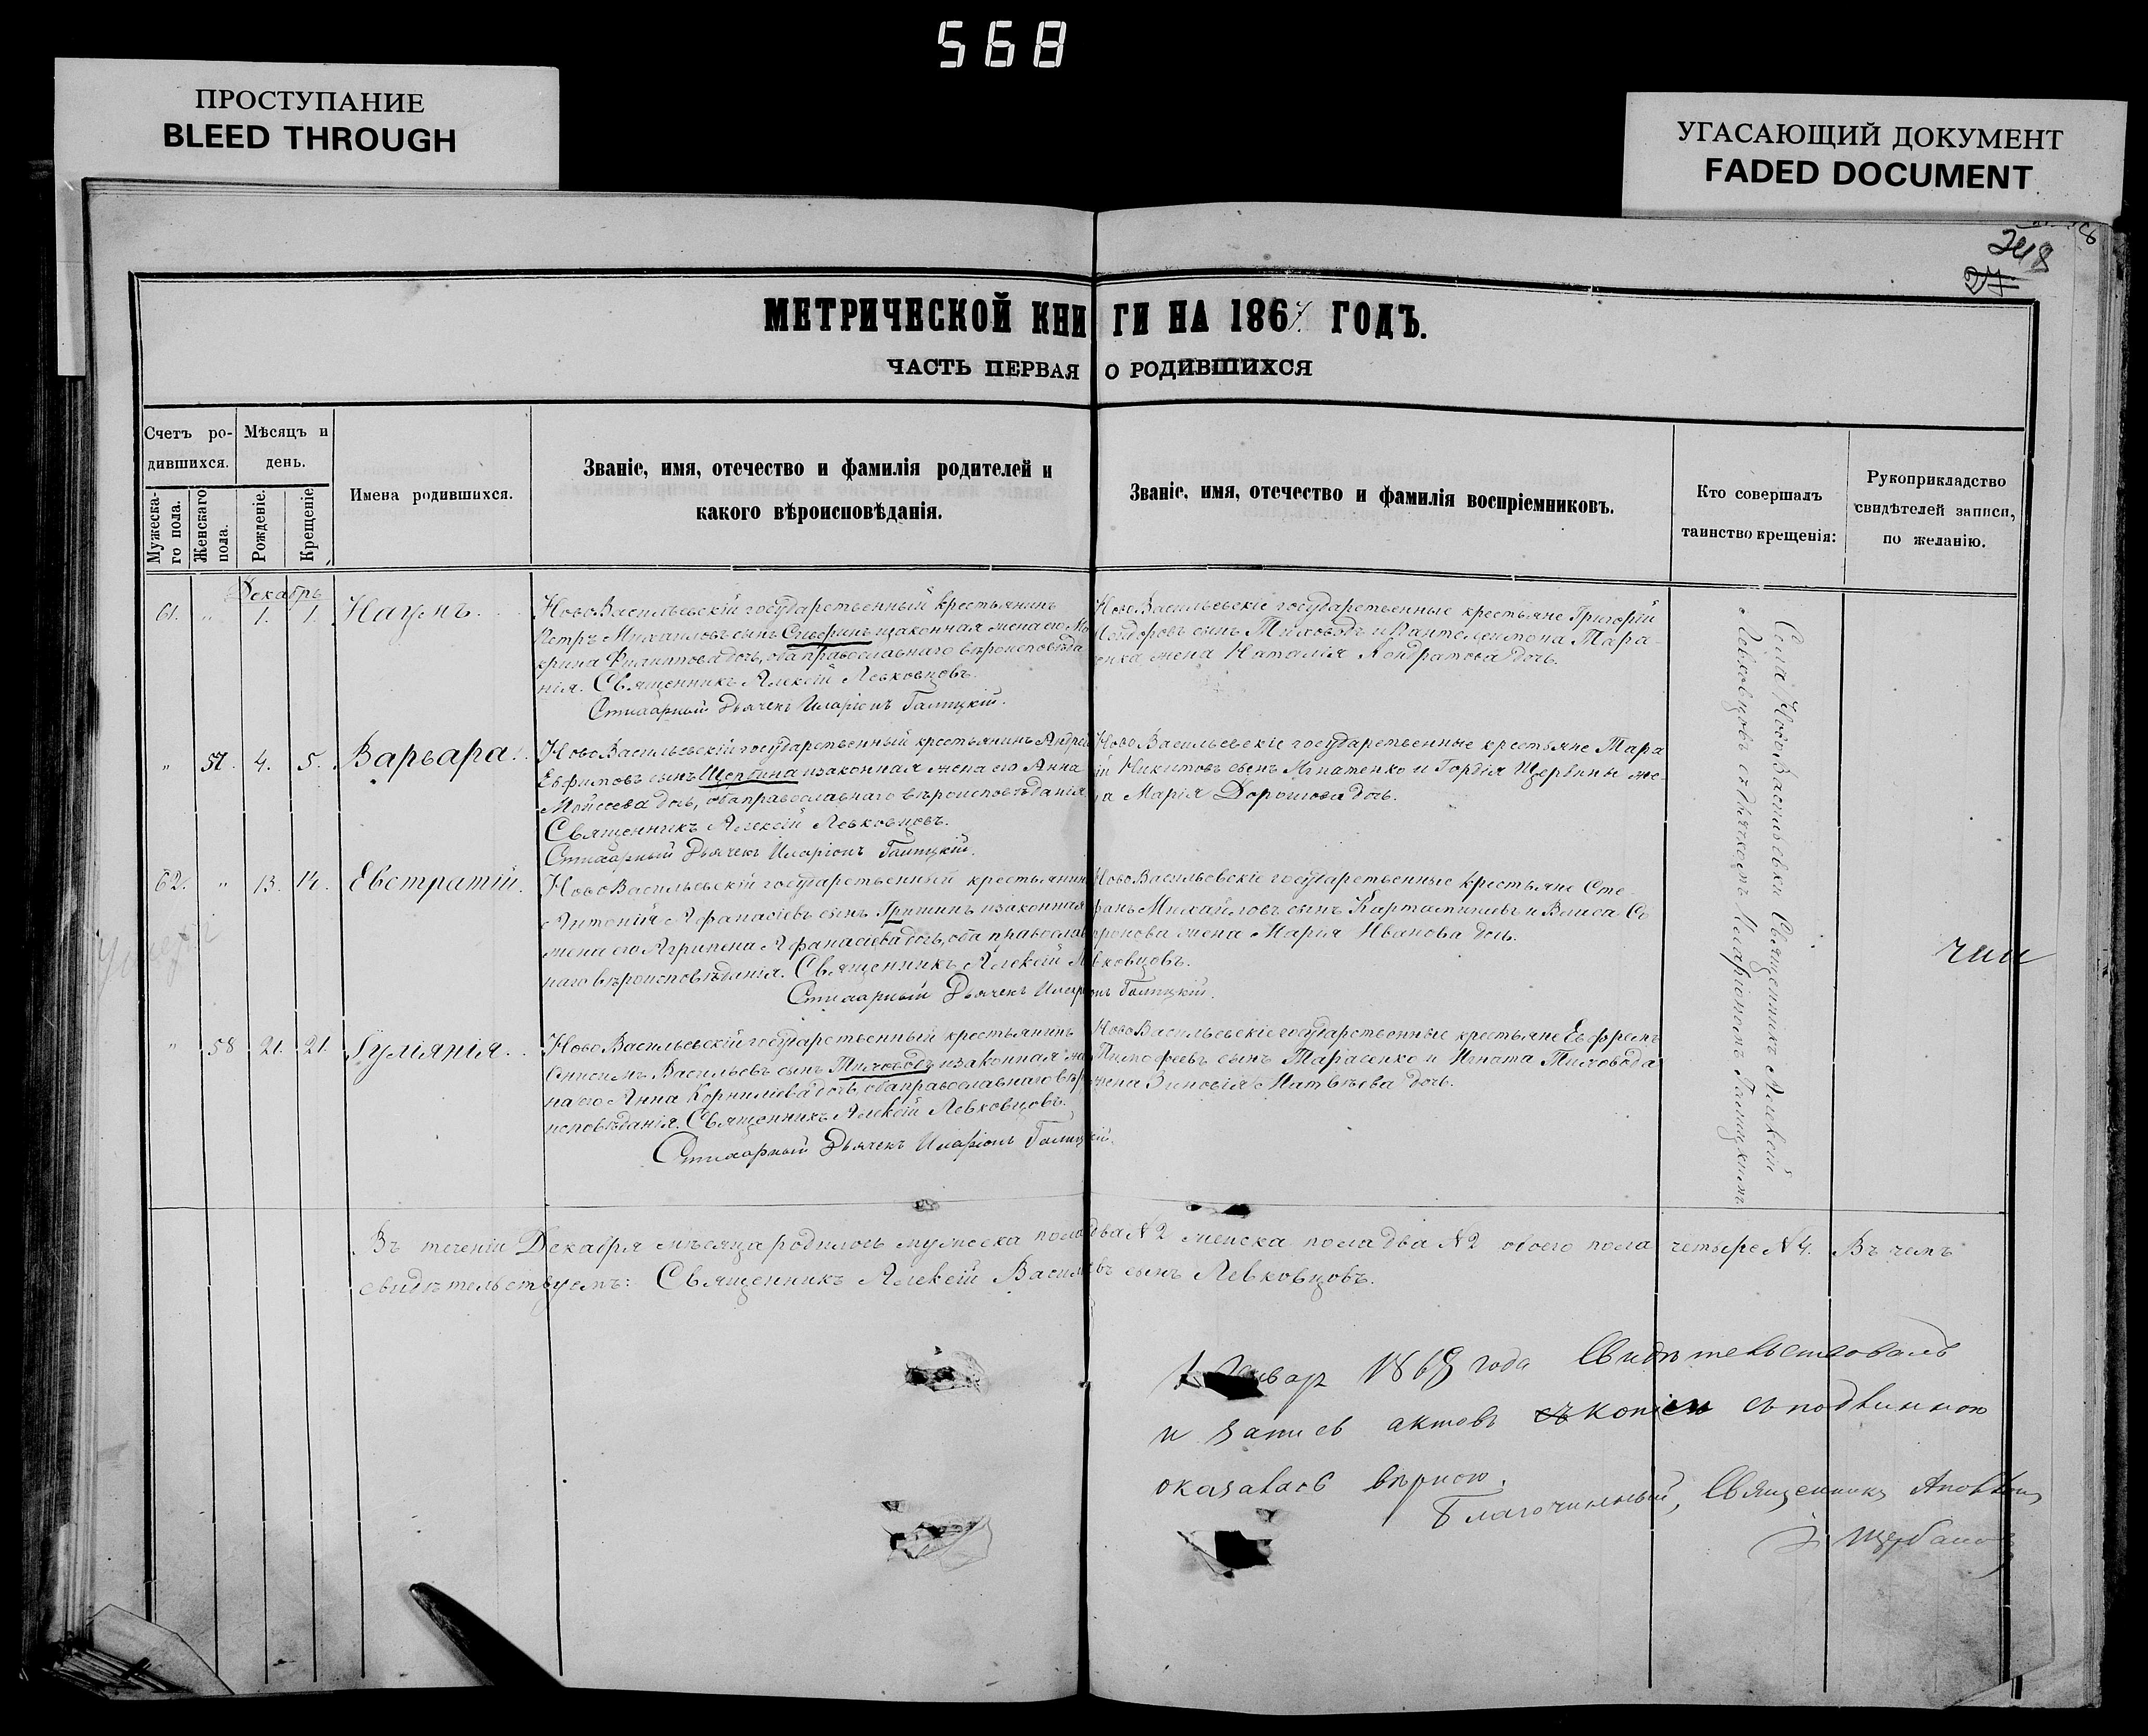 568
ПРОСТУПАНИЕ
BLEED THROUGH
УГАСАЮЩИЙ ДОКУМЕНТ
FADED DOCUMENT
248
27
МЕТРИЧЕСКОЙ КНИГИ НА 1867. ГОДЪ.
ЧАСТЬ ПЕРВАЯ О РОДИВШИХСЯ
Счетъ ро-
дившихся.
Мѣсяцъ и
день.
Мужеска-
го пола.
Женскаго
пола.
Рожденіе.
Крещеніе
Имена родившихся.
Званіе, имя, отечество и фамилія родителей и
какого вѣроисповѣданія.
Званіе, имя, отечество и фамилія воспріемниковъ.
Кто совершалъ
таинство крещенія:
Рукоприкладство
свидѣтелей записи,
по желанію.
Декабрь
61. " 1. 1. Наумъ.
НовоВасильевскій государственный крестьянинъ
Петръ Михаиловъ сынъ изаконная жена его Ма
Филиппова дочь, оба православнаго вѣроисповѣда
нія. Священникъ Алексій Левковцовъ.
Стихарный Дьячекъ Иларіонъ Галицкій.
НовоВасильевскіе государственные крестьяне Григорій
сынъ Тиховодъ и Пантелеимона Тара-
енка жена Наталія Кондратова дочь.
" 57. 4. 5. Варвара.
НовоВасильевскій государственный крестьянинъ Андрей
Евфимовъ сынъ Щербина изаконная жена его Анна
Моисеева дочь, оба православнаго вѣроисповѣданія
Священникъ Алексій Левковцовъ.
Стихарный Дьячекъ Иларіонъ Галицкій.
НовоВасильевскіе государственные крестьяне Тара
сій Никитовъ сынъ Игнатенко и Гордія Щербины же-
на Марія Дорошова дочь.
62. " 13. 14. Евстратій.
НовоВасильевскій государственный крестьянинъ
Антоній Афанасіевъ сынъ Гришинъ изаконная
жена его Агрипена Афанасіева дочь, оба православ
наго вѣроисповѣданія. Священникъ Алексій Левковцовъ.
Стихарный Дьячекъ Иларіонъ Галицкій.
НовоВасильевскіе государственные крестьяне Сте-
фанъ Михайловъ сынъ Карташевъ и Власа Со
фронова жена Марія Иванова дочь.
" 58 21. 21. Іуліянія.
НовоВасильевскій государственный крестьянинъ
Онисимъ Васильевъ сынъ Тиховодъ изаконная же
на его Анна Корниліева дочь, оба православнаго вѣро
исповѣданія. Священникъ Алексій Левковцовъ.
Стихарный Дьячекъ Иларіонъ Галицкій.
НовоВасильевскіе государственные крестьяне Евфремъ
Тимофеевъ сынъ Тарасенко и Игната Тиховода
жена Зиновія Матвѣева дочь.
Села НовоВасильевки Священникъ Алексій
Левковцовъ съ дьячкомъ Иларіономъ Галицкимъ.
Въ теченіи Декабря мѣсяца родилось мужеска пола два №2 женска пола два №2 обоего пола четыре №4. Въ чемъ
свидѣтельствуемъ: Священникъ Алексій Васильевъ сынъ Левковцовъ.
Январ 1868 года Свидѣтельствовалъ
и запись актовъ съ копіи съ подлинною
оказалась вѣрною.
Благочинный, Священникъ
Щербаковъ